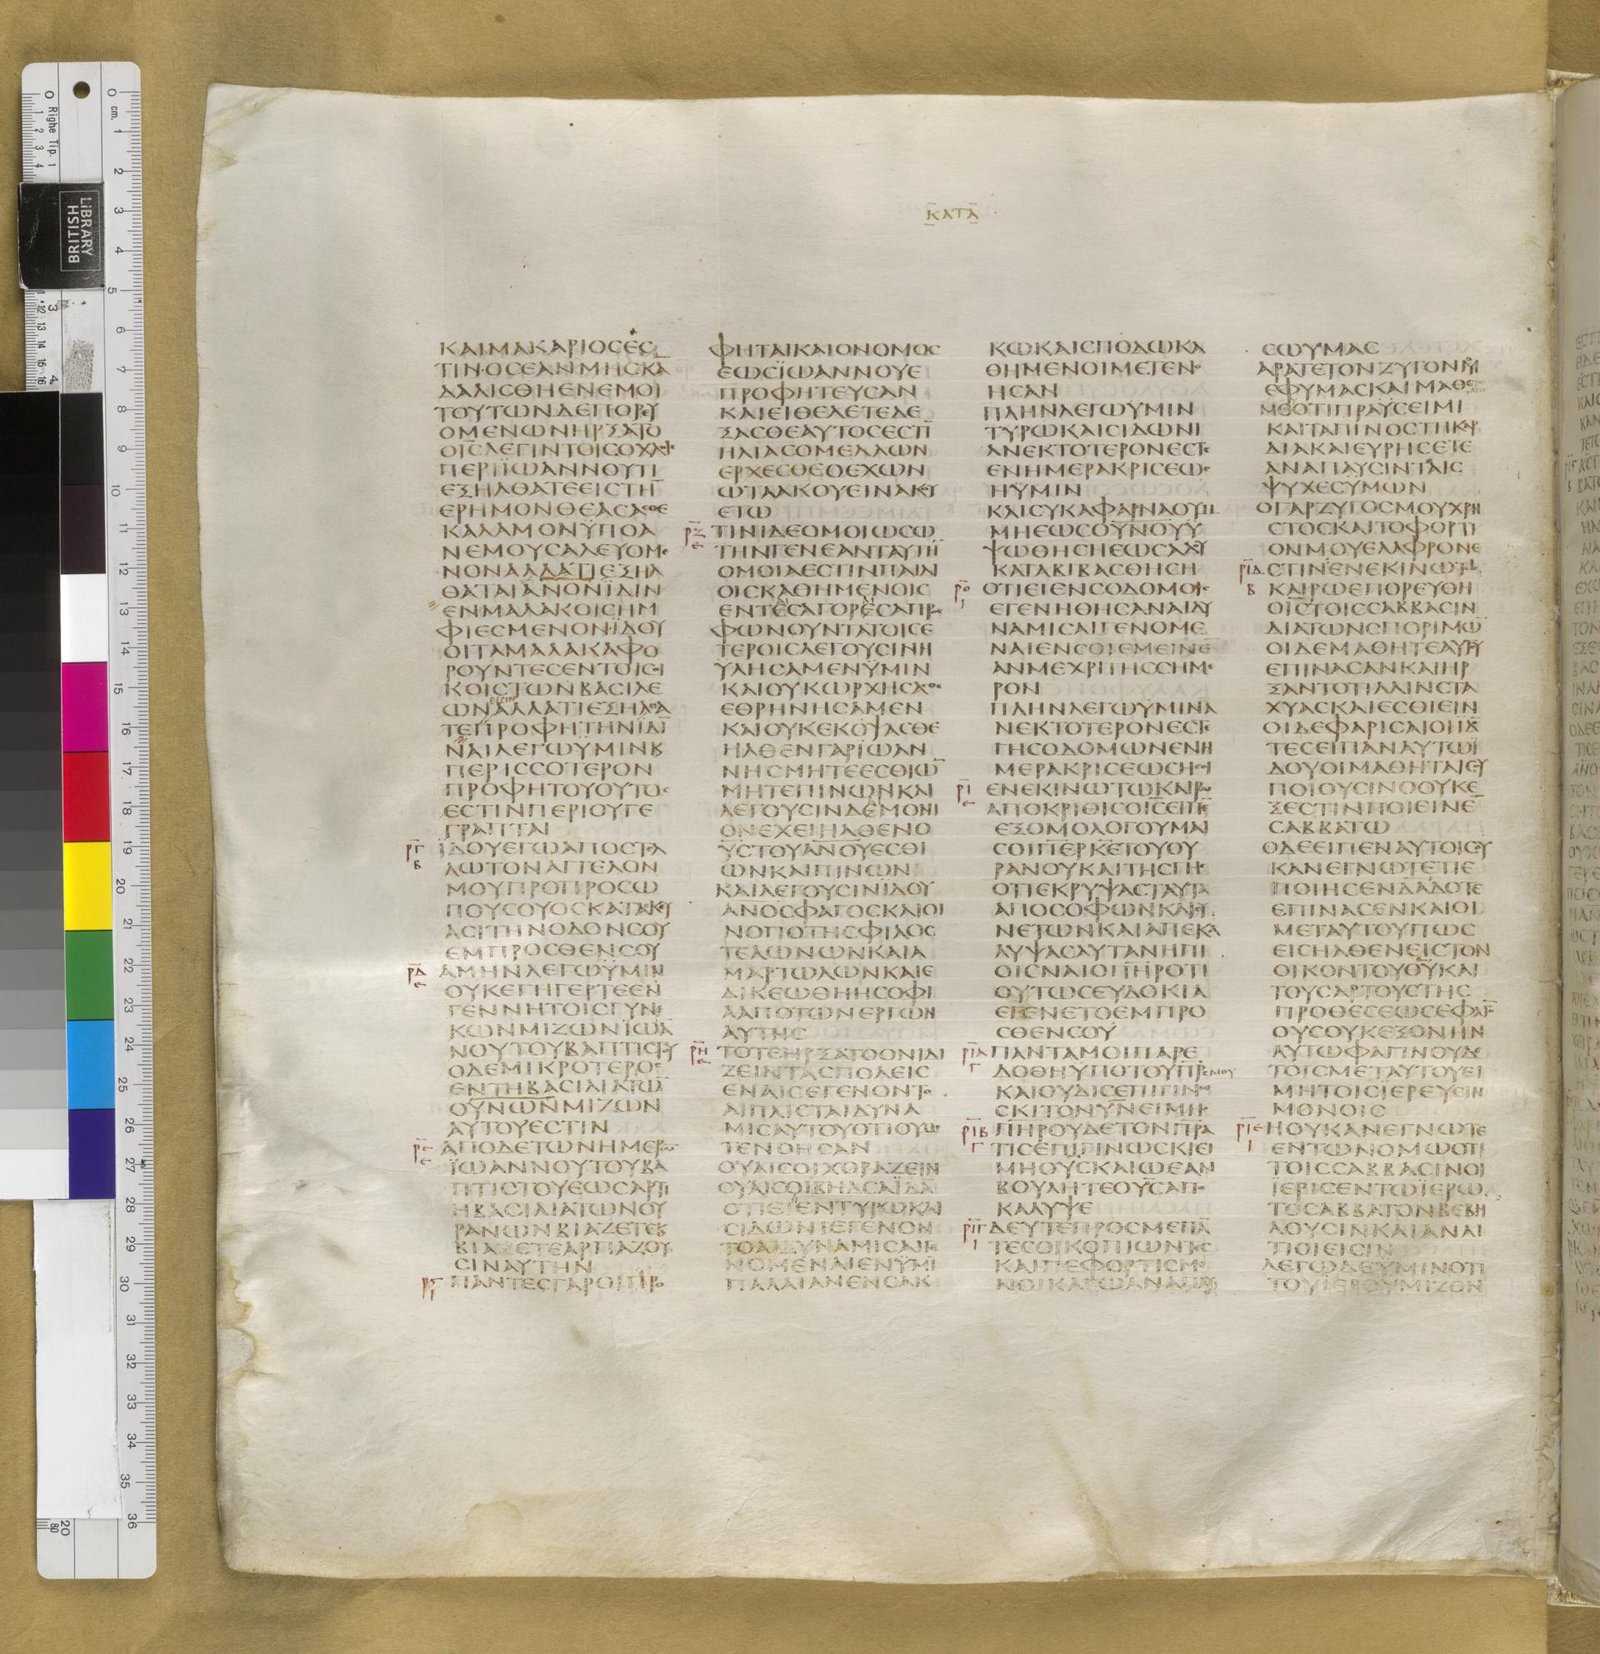 ΚΑΤΑ
ΚΑΙΜΑΚΑΡΙΟϹΕϹ
ΤΙΝΟϹΕΑΝΜΗϹΚΑ
ΔΑΛΙϹΘΗΕΝΕΜΟΙ
ΤΟΥΤΩΝΔΕΠΟΡΕΥ
ΟΜΕΝΩΝΗΡΞΑΤΟ
ΟΙϹΛΕΓΙΝΤΟΙϹΟΧΛΟΙϹ
ΠΕΡΙΪΩΑΝΝΟΥΤΙ
ΕΞΗΛΘΑΤΕΕΙϹΤΗ
ΕΡΗΜΟΝΘΕΑϹΑϹΘΕ
ΚΑΛΑΜΟΝΫΠΟΑ
ΝΕΜΟΥϹΑΛΕΥΟΜΕ
ΝΟΝΑΛΛΑΤΙΕΞΗΛ
ΘΑΤΑΙΑΝΟΝΪΔΙΝ
ΕΝΜΑΛΑΚΟΙϹΗΜ
ΦΙΕϹΜΕΝΟΝΪΔΟΥ
ΟΙΤΑΜΑΛΑΚΑΦΟ
ΡΟΥΝΤΕϹΕΝΤΟΙϹΟΙ
ΚΟΙϹΤΩΝΒΑϹΙΛΕ
ΩΝΑΛΛΑΤΙΕΞΗΛΘΑ
ΤΕΠΡΟΦΗΤΗΝΪΔΙ
ΝΑΙΛΕΓΩΫΜΙΝΚ
ΠΕΡΙϹϹΟΤΕΡΟΝ
ΠΡΟΦΗΤΟΥΟΥΤΟϹ
ΕϹΤΙΝΠΕΡΙΟΥΓΕ
ΓΡΑΠΤΑΙ
ΡΓ Β
ΪΔΟΥΕΓΩΑΠΟϹΤΕ
ΛΩΤΟΝΑΓΓΕΛΟΝ
ΜΟΥΠΡΟΠΡΟϹΩ
ΠΟΥϹΟΥΟϹΚΑΤΑϹΚΕΥ
ΑϹΙΤΗΝΟΔΟΝϹΟΥ
ΕΜΠΡΟϹΘΕΝϹΟΥ
ΡΔ Ε
ΑΜΗΝΛΕΓΩΫΜΙΝ
ΟΥΚΕΓΗΓΕΡΤΕΕΝ
ΓΕΝΝΗΤΟΙϹΓΥΝΑΙ
ΚΩΝΜΙΖΩΝΪΩΑ
ΝΟΥΤΟΥΒΑΠΤΙϹΤΟΥ
ΟΔΕΜΙΚΡΟΤΕΡΟϹ
ΕΝΤΗΒΑϹΙΛΙΑΤΩ
ΟΥΝΩΝΜΙΖΩΝ
ΑΥΤΟΥΕϹΤΙΝ
ΡΕ Ε
ΑΠΟΔΕΤΩΝΗΜΕΡΩ
ΪΩΑΝΝΟΥΤΟΥΒΑ
ΠΤΙϹΤΟΥΕΩϹΑΡΤΙ
ΗΒΑϹΙΛΙΑΤΩΝΟΥ
ΡΑΝΩΝΒΙΑΖΕΤΕΚ
ΒΙΑϹΤΕΑΡΠΑΖΟΥ
ϹΙΝΑΥΤΗΝ
ΡϚ Ι
ΠΑΝΤΕϹΓΑΡΟΙΠΡΟ
ΦΗΤΑΙΚΑΙΟΝΟΜΟϹ
ΕΩϹΪΩΑΝΝΟΥΕ
ΠΡΟΦΗΤΕΥϹΑΝ
ΚΑΙΕΙΘΕΛΕΤΕΔΕ
ΞΑϹΘΕΑΥΤΟϹΕϹΤΙ
ΗΛΙΑϹΟΜΕΛΛΩΝ
ΕΡΧΕϹΘΕΟΕΧΩΝ
ΩΤΑΑΚΟΥΕΙΝΑΚΟΥ
ΕΤΩ
ΡΖ Ε
ΤΙΝΙΔΕΟΜΟΙΩϹΩ
ΤΗΝΓΕΝΕΑΝΤΑΥΤΗ
ΟΜΟΙΑΕϹΤΙΝΠΑΙΔΙ
ΟΙϹΚΑΘΗΜΕΝΟΙϹ
ΕΝΤΕϹΑΓΟΡΕϹΑΠΡΟϹ
ΦΩΝΟΥΝΤΑΤΟΙϹΕ
ΤΕΡΟΙϹΛΕΓΟΥϹΙΝΗ
ΥΛΗϹΑΜΕΝΫΜΙΝ
ΚΑΙΟΥΚΩΡΧΗϹΑϹΘΕ
ΕΘΡΗΝΗϹΑΜΕΝ
ΚΑΙΟΥΚΕΚΟΨΑϹΘΕ
ΗΛΘΕΝΓΑΡΪΩΑΝ
ΝΗϹΜΗΤΕΕϹΘΙΩ
ΜΗΤΕΠΙΝΩΝΚΑΙ
ΛΕΓΟΥϹΙΝΔΕΜΟΝΙ
ΟΝΕΧΕΙΗΛΘΕΝΟ
ΥϹΤΟΥΑΝΟΥΕϹΘΙ
ΩΝΚΑΙΠΙΝΩΝ
ΚΑΙΛΕΓΟΥϹΙΝΙΔΟΥ
ΑΝΟϹΦΑΓΟϹΚΑΙΟΙ
ΝΟΠΟΤΗϹΦΙΛΟϹ
ΤΕΛΩΝΩΝΚΑΙΑ
ΜΑΡΤΩΛΩΝΚΑΙΕ
ΔΙΚΕΩΘΗΗϹΟΦΙ
ΑΑΠΟΤΩΝΕΡΓΩΝ
ΑΥΤΗϹ
ΡΗ Ε
ΤΟΤΕΗΡΞΑΤΟΟΝΙΔΙ
ΖΕΙΝΤΑϹΠΟΛΕΙϹ
ΕΝΑΙϹΕΓΕΝΟΝΤΟ
ΑΙΠΛΙϹΤΑΙΔΥΝΑ
ΜΙϹΑΥΤΟΥΟΤΙΟΥΜΕ
ΤΕΝΟΗϹΑΝ
ΟΥΑΙϹΟΙΧΟΡΑΖΕΙΝ
ΟΥΑΙϹΟΙΒΗΔϹΑΪΔΑ
ΟΤΙΕΙΕΝΤΥΡΩΚΑΙ
ϹΙΔΩΝΙΕΓΕΝΟΝ
ΤΟΑΙΔΥΝΑΜΙϹΑΙΓΕ
ΝΟΜΕΝΑΙΕΝΫΜΙ
ΠΑΛΑΙΑΝΕΝϹΑΚ
ΚΩΚΑΙϹΠΟΔΩΚΑ
ΘΗΜΕΝΟΙΜΕΤΕΝΟ
ΗϹΑΝ
ΠΛΗΝΛΕΓΩΫΜΙΝ
ΤΥΡΩΚΑΙϹΙΔΩΝΙ
ΑΝΕΚΤΟΤΕΡΟΝΕϹΤΕ
ΕΝΗΜΕΡΑΚΡΙϹΕΩϹ
ΗΫΜΙΝ
ΚΑΙϹΥΚΑΦΑΡΝΑΟΥΜ
ΜΗΕΩϹΟΥΝΟΥΥ
ΨΩΘΗϹΗΕΩϹΑΔΟΥ
ΚΑΤΑΒΙΒΑϹΘΗϹΗ
ΡΘ Ι
ΟΤΙΕΙΕΝϹΟΔΟΜΟΙϹ
ΕΓΕΝΗΘΗϹΑΝΑΙΔΥ
ΝΑΜΙϹΑΙΓΕΝΟΜΕ
ΝΑΙΕΝϹΟΙΕΜΕΙΝΕ
ΑΝΜΕΧΡΙΤΗϹϹΗΜΕ
ΡΟΝ
ΠΛΗΝΛΕΓΩΫΜΙΝΑ
ΝΕΚΤΟΤΕΡΟΝΕϹΤΕ
ΓΗϹΟΔΟΜΩΝΕΝΗ
ΜΕΡΑΚΡΙϹΕΩϹΗϹΟΙ
ΡΙ Ε
ΕΝΕΚΙΝΩΤΩΚΑΙΡΩ
ΑΠΟΚΡΙΘΙϹΟΙϹΕΙΠΕ
ΕΞΟΜΟΛΟΓΟΥΜΑΙ
ϹΟΙΠΕΡΚΕΤΟΥΟΥ
ΡΑΝΟΥΚΑΙΤΗϹΓΗϹ
ΟΤΙΕΚΡΥΨΑϹΤΑΥΤΑ
ΑΠΟϹΟΦΩΝΚΑΙϹΥ
ΝΕΤΩΝΚΑΙΑΠΕΚΑ
ΛΥΨΑϹΑΥΤΑΝΗΠΙ
ΟΙϹΝΑΙΟΠΗΡΟΤΙ
ΟΥΤΩϹΕΥΔΟΚΙΑ
ΕΓΕΝΕΤΟΕΜΠΡΟ
ϹΘΕΝϹΟΥ
ΡΙΑ Γ
ΠΑΝΤΑΜΟΙΠΑΡΕ
ΔΟΘΗΥΠΟΤΟΥΠΡϹΜΟΥ
ΚΑΙΟΥΔΙϹΕΠΙΓΙΝΩ
ϹΚΙΤΟΝΥΝΕΙΜΗ
ΡΙΒ Γ
ΠΗΡΟΥΔΕΤΟΝΠΡΑ
ΤΙϹΕΠΙΓΙΝΩϹΚΙΕΙ
ΜΗΟΥϹΚΑΙΩΕΑΝ
ΒΟΥΛΗΤΕΟΥϹΑΠΟ
ΚΑΛΥΨΕ
ΡΙΓ Ι
ΔΕΥΤΕΠΡΟϹΜΕΠΑ
ΤΕϹΟΙΚΟΠΙΩΝΤΕϹ
ΚΑΙΠΕΦΟΡΤΙϹΜΕ
ΝΟΙΚΑΓΩΑΝΑΠΑΥ
ϹΩΥΜΑϹ
ΑΡΑΤΕΤΟΝΖΥΓΟΝΜΟΥ
ΕΦΥΜΑϹΚΑΙΜΑΘΕΤΕ
ΟΤΙΠΡΑΥϹΕΙΜΙ
ΚΑΙΤΑΠΙΝΟϹΤΗΚΑΡ
ΔΙΑΚΑΙΕΥΡΗϹΕΤΕ
ΑΝΑΠΑΥϹΙΝΤΑΙϹ
ΨΥΧΕϹΥΜΩΝ
ΟΓΑΡΖΥΓΟϹΜΟΥΧΡΗ
ϹΤΟϹΚΑΙΤΟΦΟΡΤΙ
ΟΝΜΟΥΕΛΑΦΡΟΝΕ
ϹΤΙΝΕΝΕΚΙΝΩΤΩ
ΡΙΔ Β
ΚΑΙΡΩΕΠΟΡΕΥΘΗ
ΟΙϹΤΟΙϹϹΑΒΒΑϹΙΝ
ΔΙΑΤΩΝϹΠΟΡΙΜΩ
ΟΙΔΕΜΑΘΗΤΕΑΥΤΟΥ
ΕΠΙΝΑϹΑΝΚΑΙΗΡ
ΞΑΝΤΟΤΙΛΛΙΝϹΤΑ
ΧΥΑϹΚΑΙΕϹΘΙΕΙΝ
ΟΙΔΕΦΑΡΙϹΑΙΟΙΪΔΟ
ΤΕϹΕΙΠΑΝΑΥΤΩΪ
ΔΟΥΟΙΜΑΘΗΤΑΙϹΟΥ
ΠΟΙΟΥϹΙΝΟΟΥΚΕ
ΞΕϹΤΙΝΠΟΙΕΙΝΕ
ϹΑΒΒΑΤΩ
ΟΔΕΕΙΠΕΝΑΥΤΟΙϹΟΥ
ΚΑΝΕΓΝΩΤΕΤΙΕ
ΠΟΙΗϹΕΝΔΑΔΟΤΕ
ΕΠΙΝΑϹΕΝΚΑΙΟΙ
ΜΕΤΑΥΤΟΥΠΩϹ
ΕΙϹΗΛΘΕΝΕΙϹΤΟΝ
ΟΙΚΟΝΤΟΥΘΥΚΑΙ
ΤΟΥϹΑΡΤΟΥϹΤΗϹ
ΠΡΟΘΕϹΕΩϹΕΦΑΓΟ
ΟΥϹΟΥΚΕΞΟΝΗΝ
ΑΥΤΩΦΑΓΙΝΟΥΔΕ
ΤΟΙϹΜΕΤΑΥΤΟΥΕΙ
ΜΗΤΟΙϹΙΕΡΕΥϹΙΝ
ΜΟΝΟΙϹ
ΡΙΕ Ι
ΗΟΥΚΑΝΕΓΝΩΤΕ
ΕΝΤΩΝΟΜΩΟΤΙ
ΤΟΙϹϹΑΒΒΑϹΙΝΟΙ
ΪΕΡΙϹΕΝΤΩΪΕΡΩ
ΤΟϹΑΒΒΑΤΟΝΒΕΒΗ
ΛΟΥϹΙΝΚΑΙΑΝΑΙ
ΤΙΟΙΕΙϹΙΝ
ΛΕΓΩΔΕΥΜΙΝΟΤΙ
ΤΟΥΪΕΡΟΥΜΙΖΟΝ
BRITISH
LIBRARY